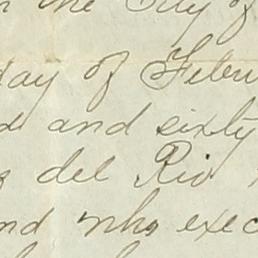 the City of
day of Febru
and sixty
del Rio
nd who exec